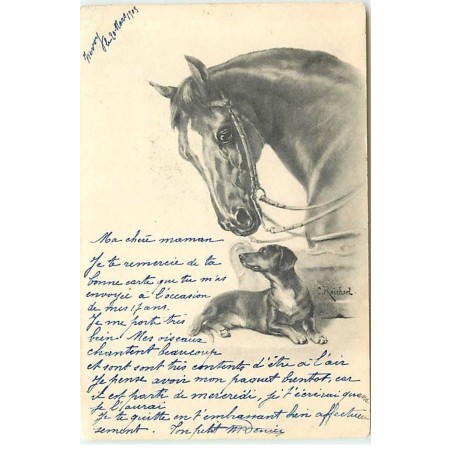 le 20 Mars 1903
Ma chère maman
Je te remercie de ta
bonne carte que tu m'as
envoyée à l'occasion
de mes 17 ans.
Je me porte très
bien. Mes oiseaux
chantent beaucoup
et sont très contents d'être à l'air
Je pense avoir mon paquet bientot, car
il est parti de mercredi, je t'écrirai quand
je l'aurai
Je te quitte en t'embrassant bien affectueu
sement. Ton petit
C. Reichert